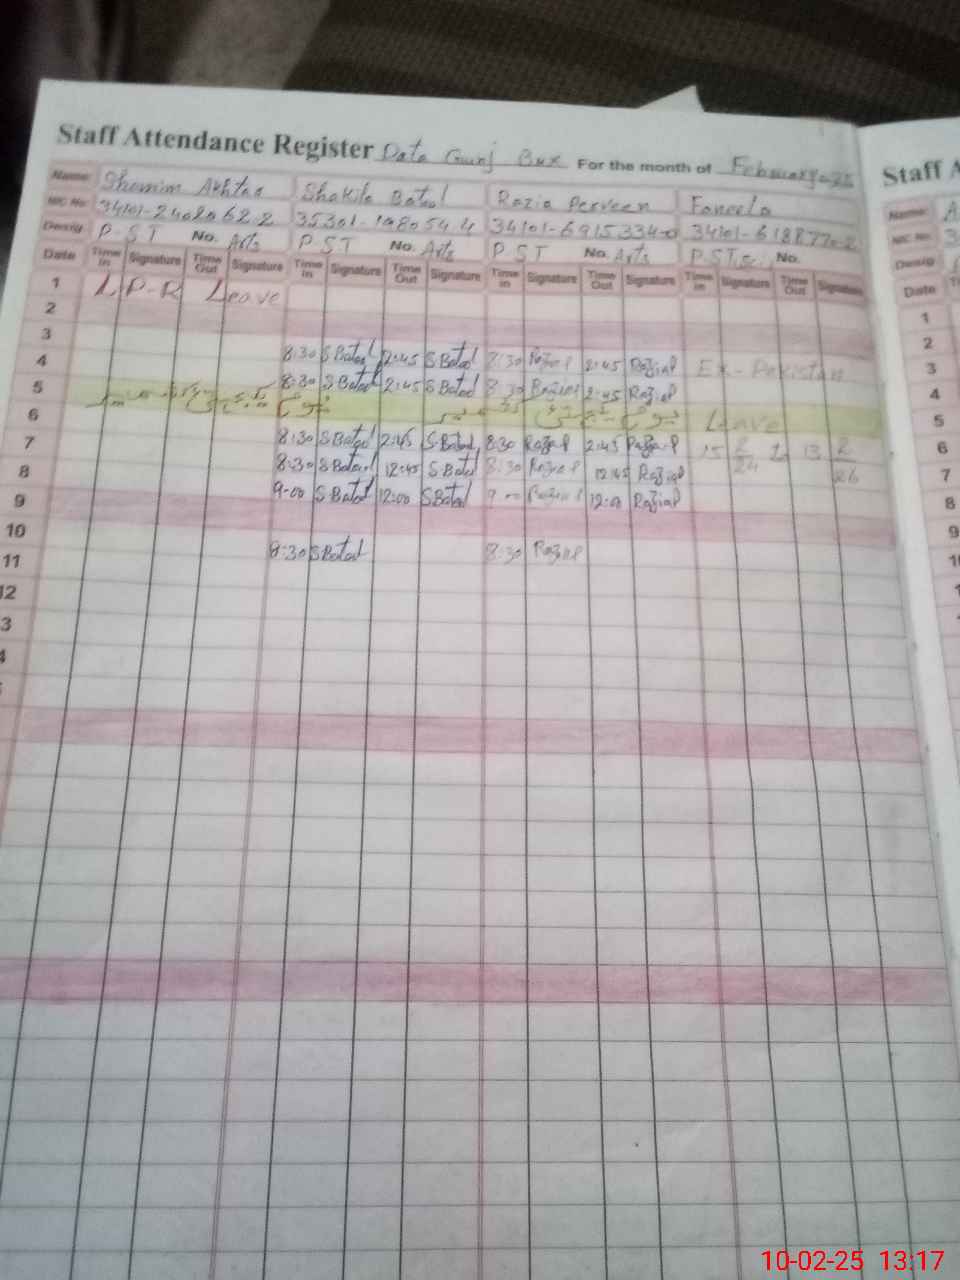 Staff Attendance Register Data Gunj Bux For the month of February 2025
Name: Shamim Akhtar Shakila Batol Razia Perveen Faneela
NIC No: 34101-2402062-2 34101-6915334-0
Desig: P-ST No. Arts PST No. Arts PST No. Arts No.
Date Time In Signature Time Out Signature Time In Signature Time Out Signature Time In Signature Time Out Signature Time In Signature Time Out Signature
1 L P-R Leave
2
3 8:30 SBatol 2:45 SBatol 8:30 Razia P 2:45 Razia P Ex-Pakistan
4 8:30 SBatol 2:45 SBatol 8:30 Razia P 2:45 Razia P
5 یوم یکجہتی کشمیر یوم یکجہتی کشمیر Leave
6 8:30 SBatol 2:45 SBatol 8:30 Razia P 2:45 Razia P 15 2/24 to 13 2/26
7 8:30 SBatol 12:45 SBatol 8:30 Razia P 12:45 Razia P
8 9-00 SBatol 12:00 SBatol 9-00 Razia P 12:00 Razia P
9
10 8:30 SBatol 8:30 Razia P
11
12
3
4
Staff A
Name: A
NIC No: 3
Desig
Date
1
2
3
4
5
6
7
8
9
10-02-25 13:17